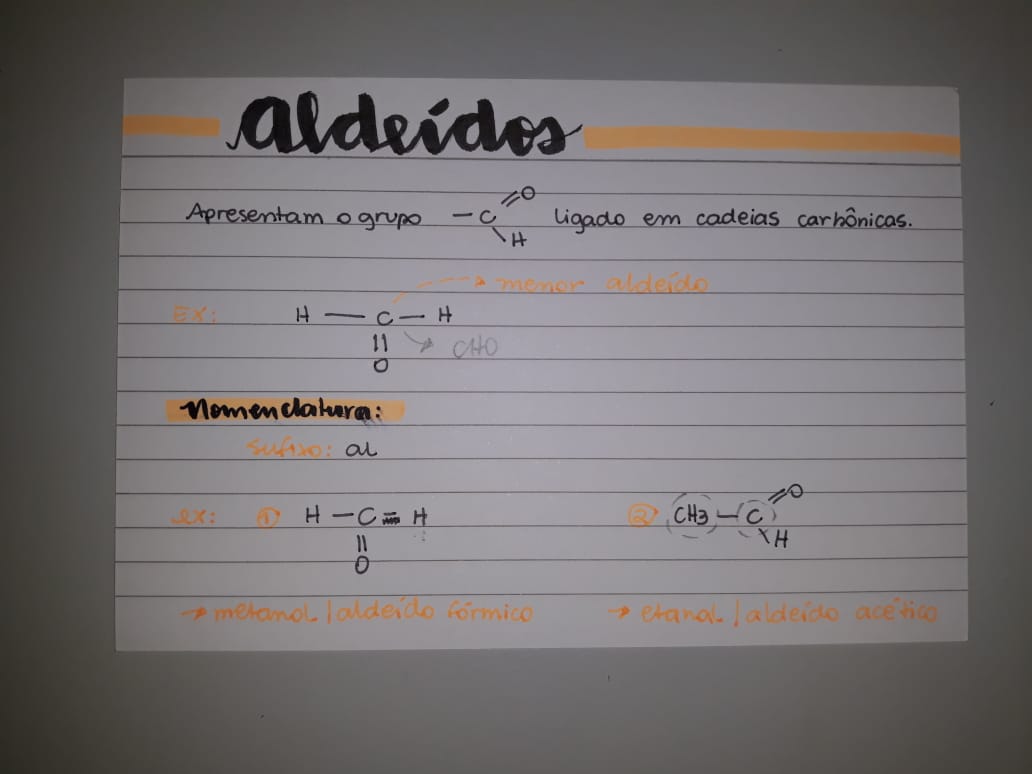 Aldeídos
Apresentam o grupo —C=O H ligado em cadeias carbônicas.
→ menor aldeído
Ex: H — C — H
|| → CHO
O
Nomenclatura:
Sufixo: al
ex: ① H — C = H ② CH3 — C =O
|| \ H
O
→ metanal / aldeído fórmico → etanal / aldeído acético